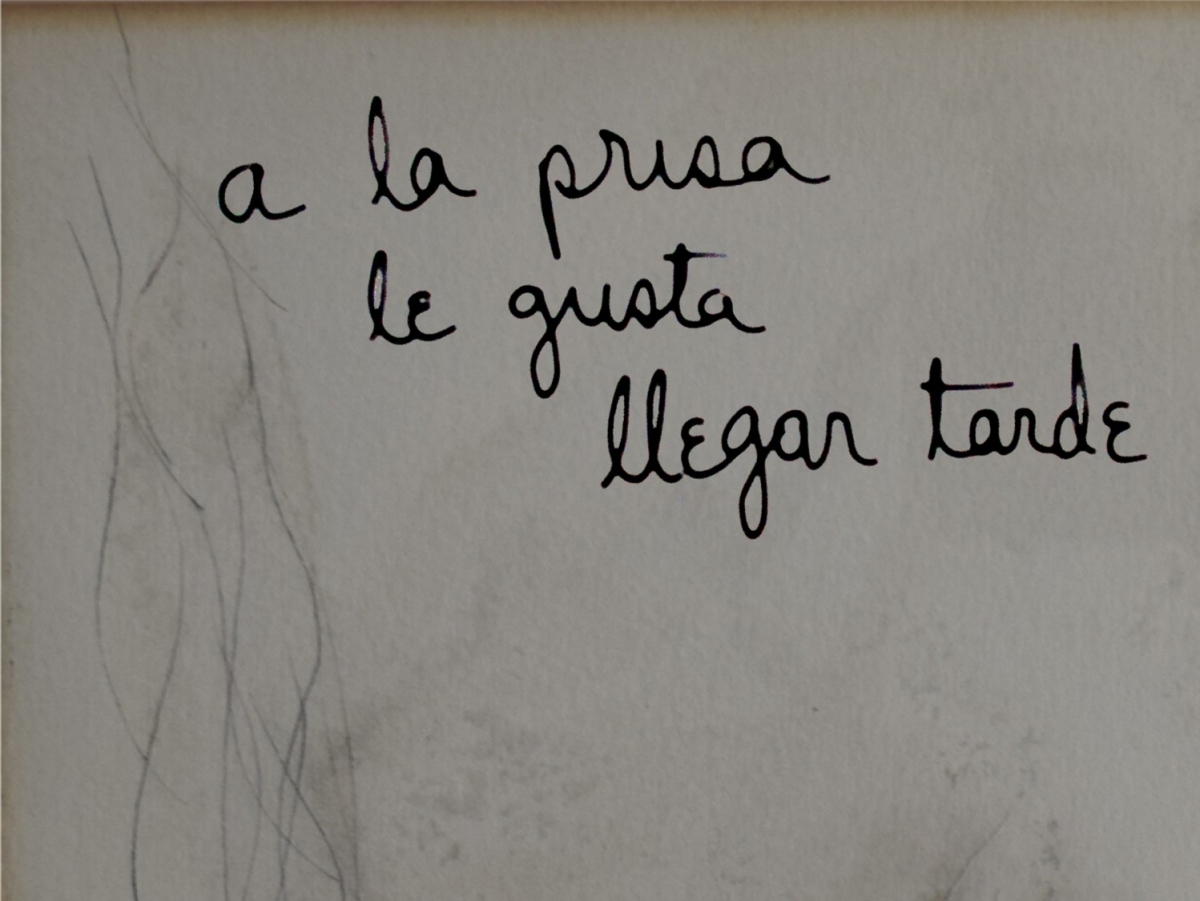 a la prisa
le gusta
llegar tarde